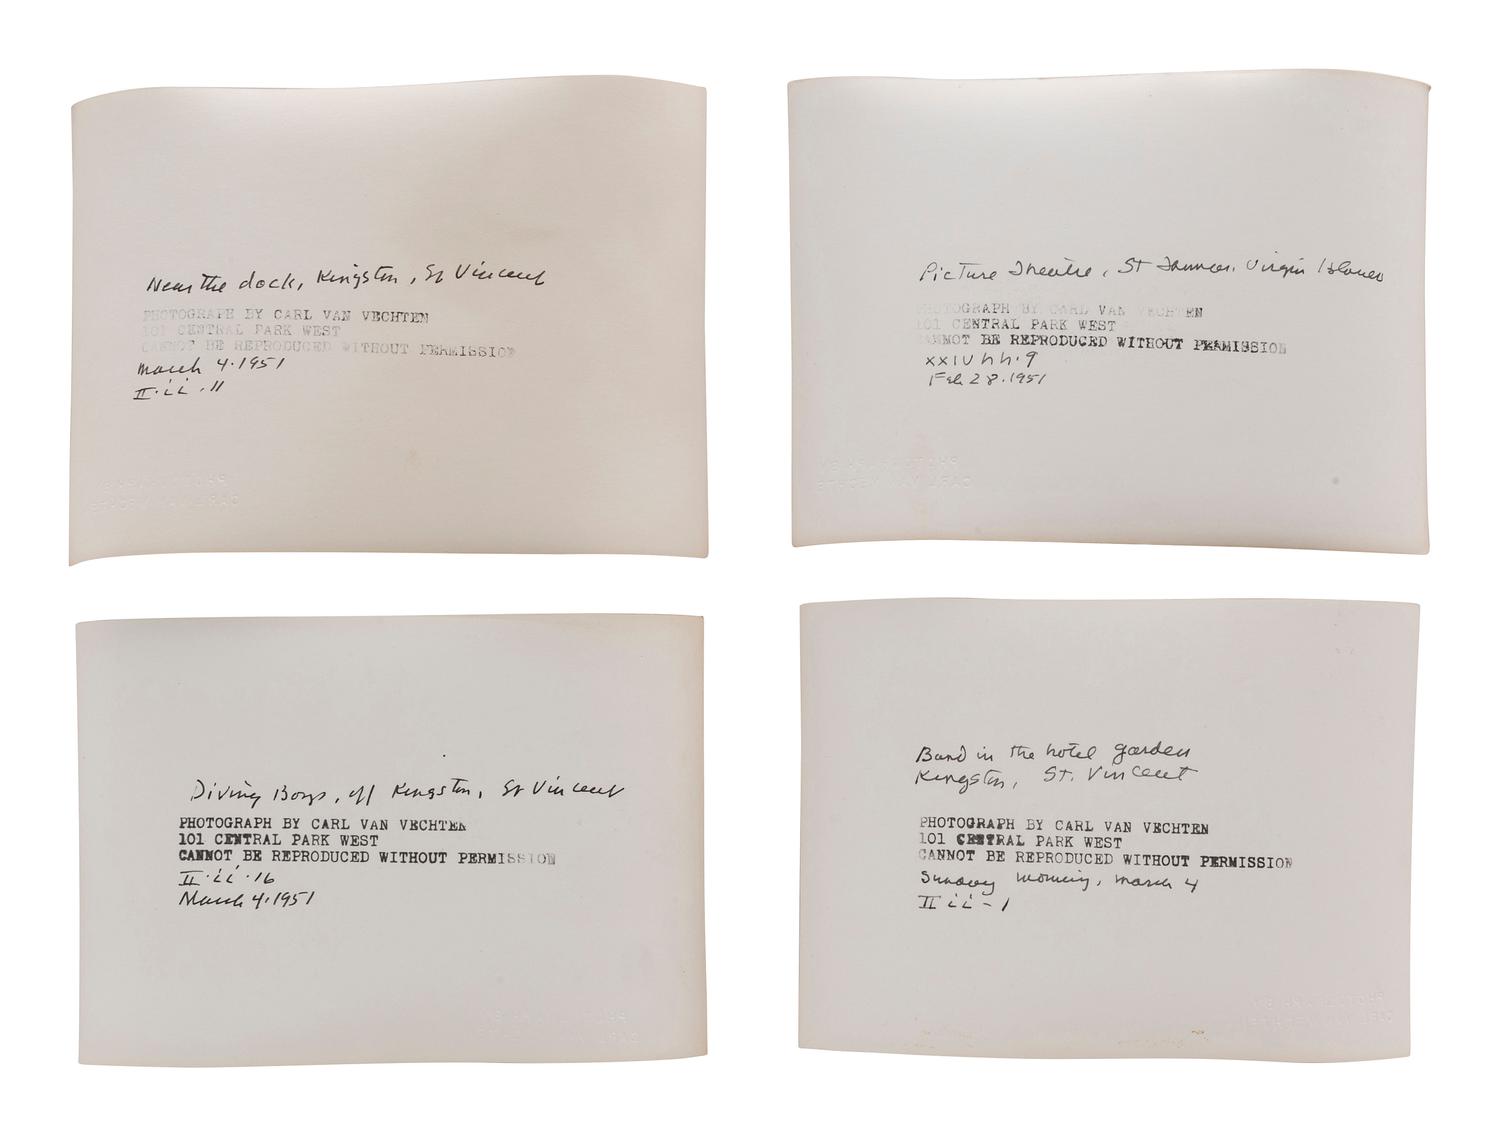 Near the dock, Kingston, St Vincent
PHOTOGRAPH BY CARL VAN VECHTEN
101 CENTRAL PARK WEST
CANNOT BE REPRODUCED WITHOUT PERMISSION
March 4.1951
II.ii.11
PHOTOGRAPH BY
CARL VAN VECHTEN
Picture Theatre, St Thomas, Virgin Islands
PHOTOGRAPH BY CARL VAN VECHTEN
101 CENTRAL PARK WEST
CANNOT BE REPRODUCED WITHOUT PERMISSION
XXIV hh.9
Feb 28.1951
PHOTOGRAPH BY
CARL VAN VECHTEN
Diving Boys, off Kingston, St Vincent
PHOTOGRAPH BY CARL VAN VECHTEN
101 CENTRAL PARK WEST
CANNOT BE REPRODUCED WITHOUT PERMISSION
II.ii.16
March 4.1951
PHOTOGRAPH BY
CARL
Band in the hotel garden
Kingston, St. Vincent
PHOTOGRAPH BY CARL VAN VECHTEN
101 CENTRAL PARK WEST
CANNOT BE REPRODUCED WITHOUT PERMISSION
Sunday morning, March 4
II ii - 1
PHOTOGRAPH BY
CARL VAN VECHTEN